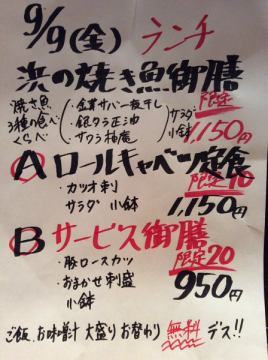 9/9(金) ランチ
浜の焼き魚御膳
焼き魚
3種の食べ
くらべ
(・金華サバ一夜干し
・銀ダラ正油
・サワラ柚庵)
サラダ
小鉢
限定
1,150円
A ロールキャベツ定食
限定10
・カツオ刺
サラダ 小鉢
1,150円
B サービス御膳
限定20
・豚ロースカツ
・おまかせ刺盛
小鉢
950円
ご飯、お味噌汁 大盛り お替わり 無料 デス!!